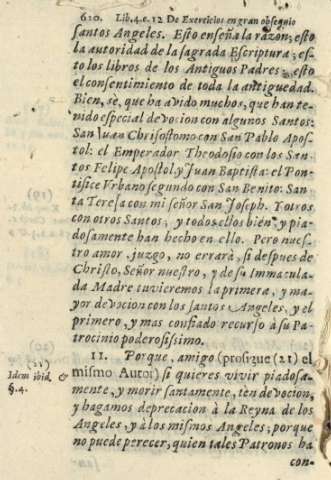 620. Lib.4.c.12 De Exercicios en gran obsequio
santos Angeles. Esto enseña la razon; esto
la autoridad de la sagrada Escriptura; es-
to los libros de los Antiguos Padres; esto
el consentimiento de toda la antiguedad.
Bien, sè, que ha avido muchos, que han te-
nido especial devocion con algunos Santos:
San Iuan Chrisostomo con San Pablo Apos-
tol: el Emperador Theodosio con los San-
tos Felipe Apostol, y Juan Baptista: el Pon-
tifice Vrbano segundo con San Benito: San-
ta Teresa con mi señor San Joseph. Y otros
con otros Santos, y todos ellos bien, y pia-
dosamente han hecho en ello. Pero nues-
tro amor, juzgo, no errarà, si despues de
Christo, Señor nuestro, y de su Immacula-
da Madre tuvieremos la primera, y ma-
yor devocion con los santos Angeles, y el
primero, y mas confiado recurso à su Pa-
trocinio poderosissimo.
11. Porque, amigo (prosigue (21) el
(21)
Idem ibid.
§.4.
mismo Autor) si quieres vivir piadosa-
mente, y morir santamente, ten devocion,
y hagamos deprecacion à la Reyna de los
Angeles, y à los mismos Angeles; porque
no puede perecer, quien tales Patronos ha
con-